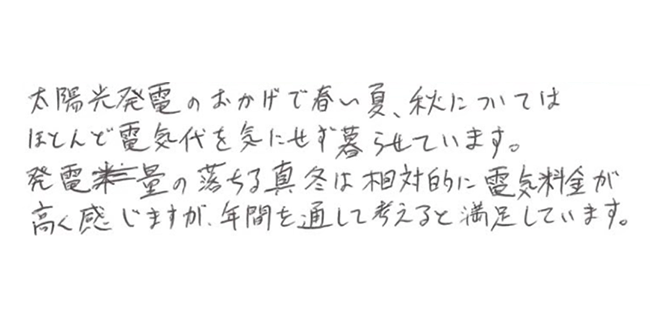 太陽光発電のおかげで春い夏、秋については
ほとんど電気代を気にせず暮らせています。
発電量の落ちる真冬は相対的に電気料金が
高く感じますが、年間を通して考えると満足しています。